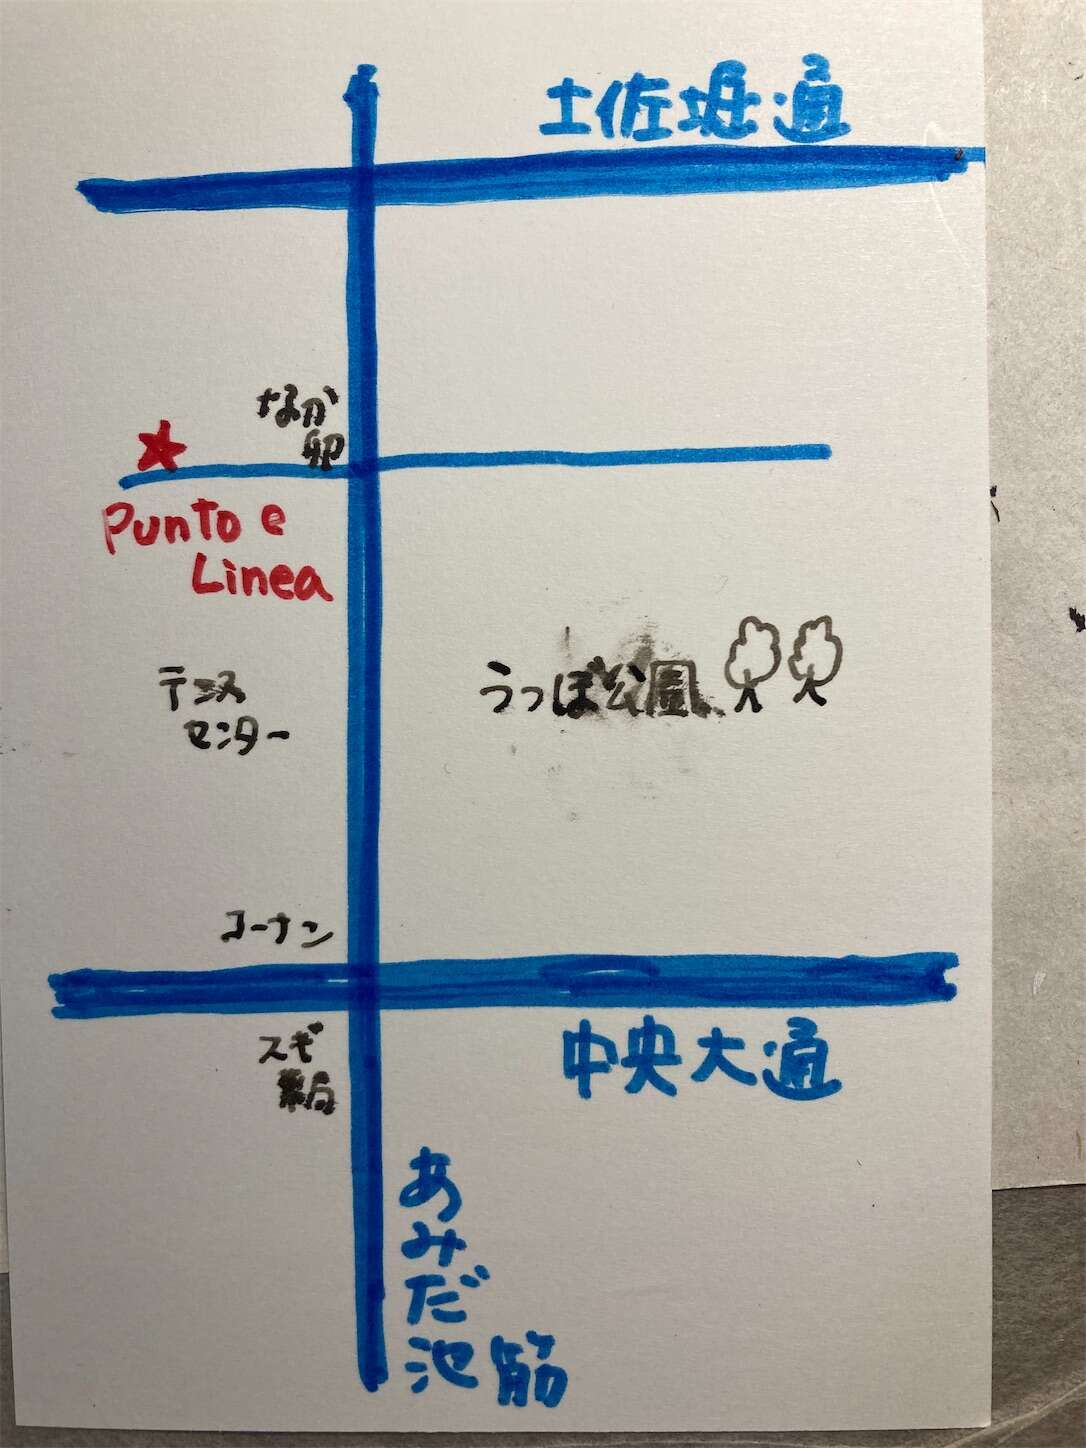 土佐堀通
なか
卯
Punto e
Linea
テニス
センター
うつぼ公園
コーナン
スギ
薬局
中央大通
あみだ
池筋